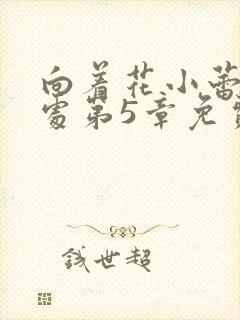 向着花小蕾
处第5章免
钱世超